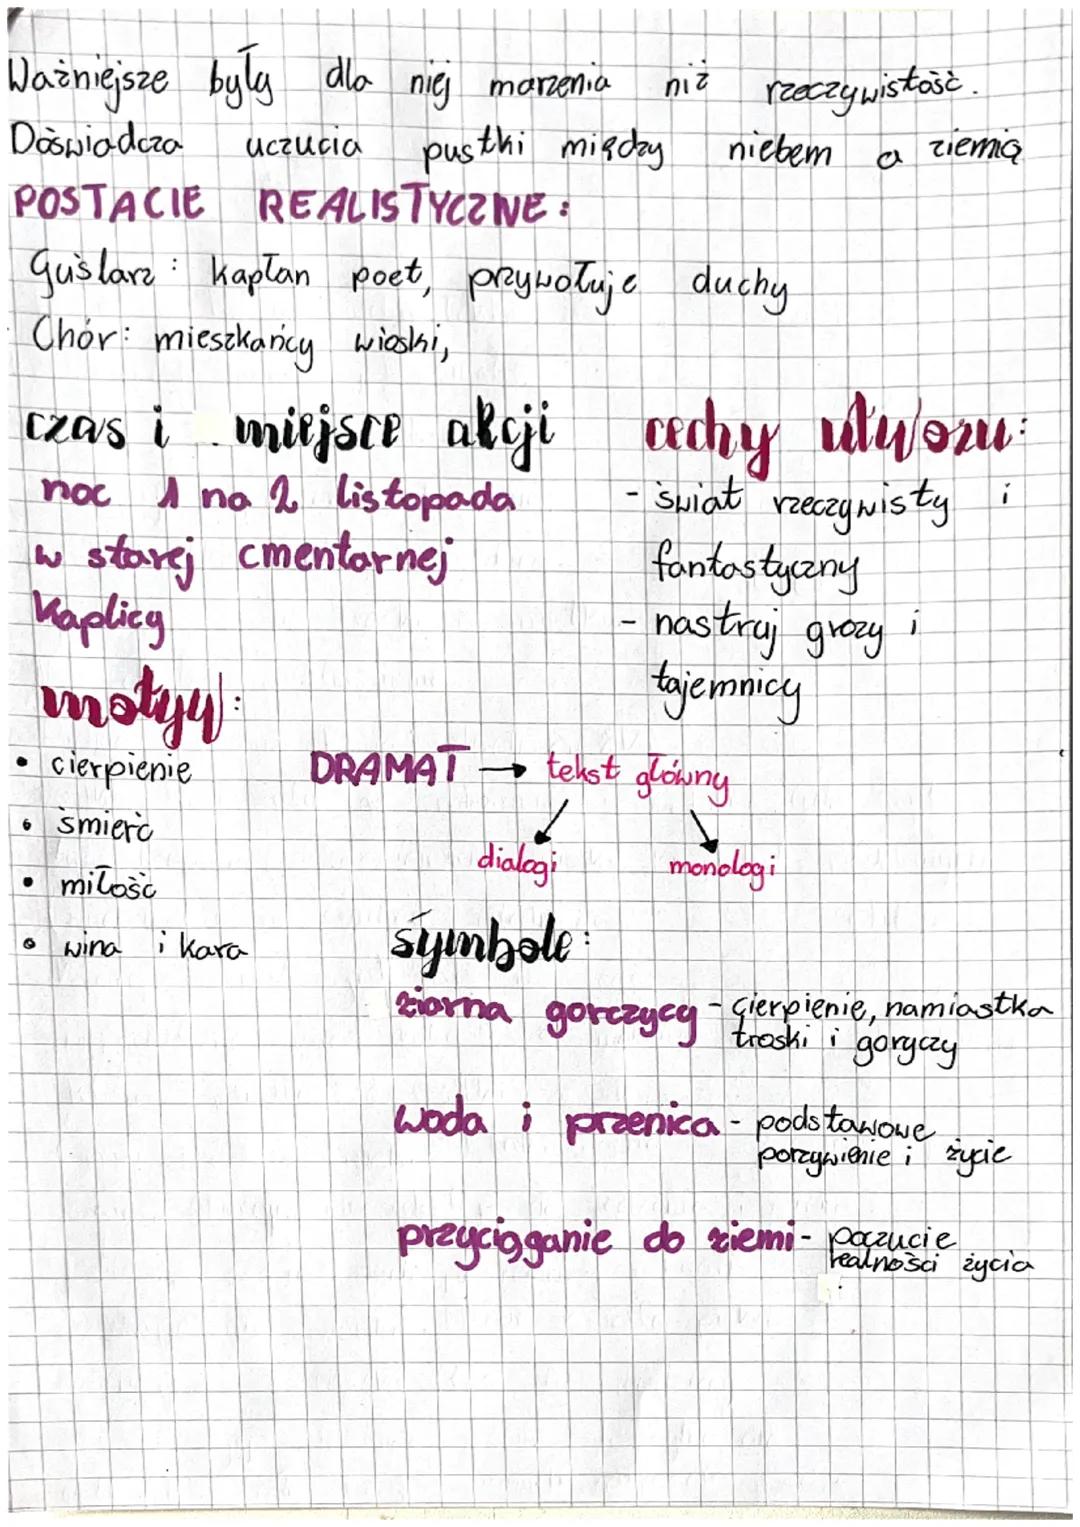 Ważniejsze były dla niej marzenia niż rzeczywistość.
Doświadcza uczucia pustki między niebem a ziemią
POSTACIE REALISTYCZNE:
Guślarz: kapłan poet, przywołuje duchy
Chór: mieszkańcy wioski,
czas i miejsce akcji
noc 1 na 2 listopada
w starej cmentarnej
kaplicy
cechy utworu:
- świat rzeczywisty i
fantastyczny
- nastruj grozy i
tajemnicy
motywy:
• cierpienie
• śmierć
• miłość
• wina i kara
DRAMAT → tekst główny
dialogi monologi
symbole:
ziarna gorczycy - cierpienie, namiastka
troski i goryczy
woda i przenica - podstawowe
porzywienie i życie
przyciąganie do ziemi - poczucie
realności życia